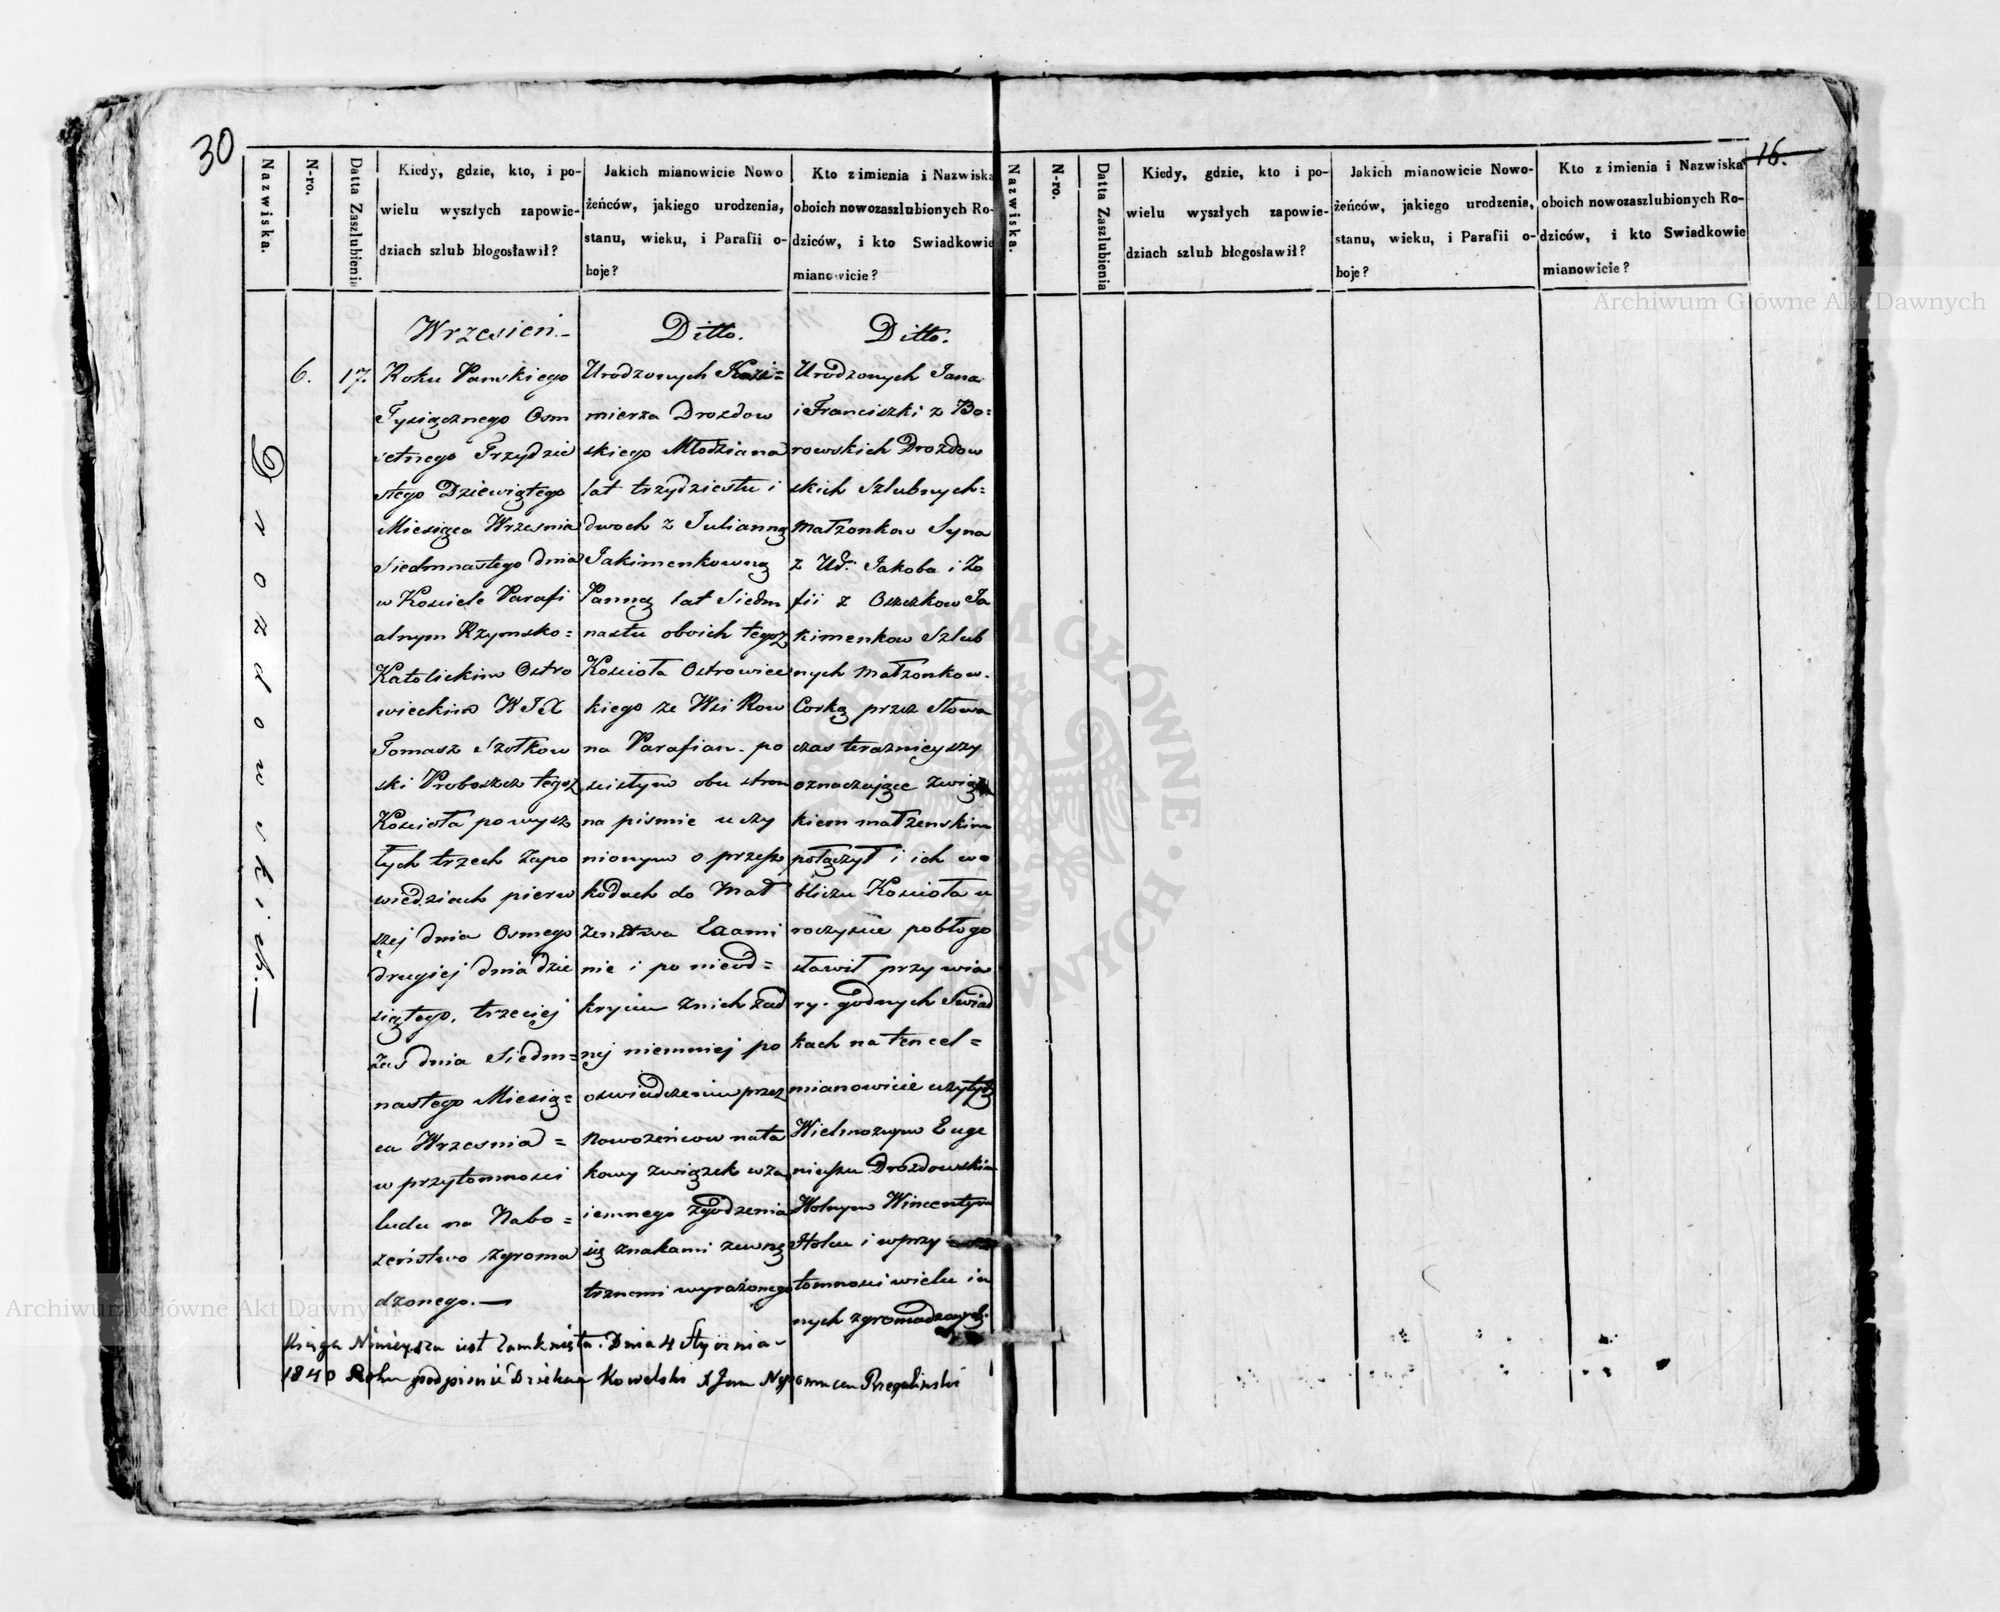 30
16.
Nazwiska.
N-ro.
Datta Zaszlubienia
Kiedy, gdzie, kto, i po-
wielu wyszłych zapowie-
dziach szlub błogosławił?
Jakich mianowicie Nowo
żeńców, jakiego urodzenia,
stanu, wieku, i Parafii o-
boje?
Kto z imienia i Nazwiska
oboich nowozaszlubionych Ro-
dziców, i kto Swiadkowie
mianowicie?
Drozdowskich.—
6.
17.
Wrzesień.—
Roku Pańskiego
Tysiącznego Osm
setnego Trzydzie
stego Dziewiątego
Miesiąca Wrzesnia
Siedmnastego dnia
w Kosciele Parafi
alnym Rzymsko=
Katolickim Ostro
wieckim WJX
Tomasz Szołkow
ski Proboszcz tegoż
Kościoła po wysz
łych trzech zapo
wiedziach pierw
szej dnia Osmego
drugiej dnia dzie
siątego, trzeciej
zaś dnia Siedm=
nastego Miesią=
ca Wrzesnia=
w przytomnosci
ludu na Nabo=
żeństwo zgroma
dzonego.—
Ditto.
Urodzonych Kazi=
mierza Drozdow
skiego Młodziana
lat trzydziestu i
dwoch z Julianną
Jakimenkowną
Panną lat Siedm
nastu oboich tegoż
Kościoła Ostrowiec
kiego ze Wsi Row
na Parafian. po
scisłym obu stron
na pismie uczy
nionym o przesz
kodach do Mał
żenstwa Exami
nie i po nieod=
kryciu z nich żad
nej niemniej po
oswiadczeniu przez
Nowożeńcow na ta
kowy związek wza
iemnego zgodzenia
się znakami zewnę
trznemi wyrażonego
Ditto.
Urodzonych Jana
i Franciszki z Bo=
rowskich Drozdow
skich Szlubnych=
Małżonkow Syna
z Ud: Jakoba i Zo
fii z Oszczkow Ja
kimenkow Szlub
nych Małżonkow.
Corką przez słowa
czas terazniejszy
oznaczające związ
kiem małżenskim
połączył i ich w o
bliczu Kościoła u
roczyscie pobłogo
sławił przy wia
ry. godnych Swiad
kach na ten cel=
mianowicie użytych
Wielmożnym Euge
niuszu Drozdowskim
Wolnym Wincentym
i w przy
tomnosci wielu in
nych zgromadzonych.
Księga Ninieysza iest Zamknięta. Dnia 4 Stycznia
1840 Roku podpisuie Dziekan Kowelski X Jan Nepomucen
Nazwiska.
N-ro.
Datta Zaszlubienia
Kiedy, gdzie, kto i po-
wielu wyszłych zapowie-
dziach szlub błogosławił?
Jakich mianowicie Nowo-
żeńców, jakiego urodzenia,
stanu, wieku, i Parafii o-
boje?
Kto z imienia i Nazwiska
oboich nowozaszlubionych Ro-
dziców, i kto Swiadkowie
mianowicie?
Archiwum Główne Akt Dawnych
Archiwum Główne Akt Dawnych